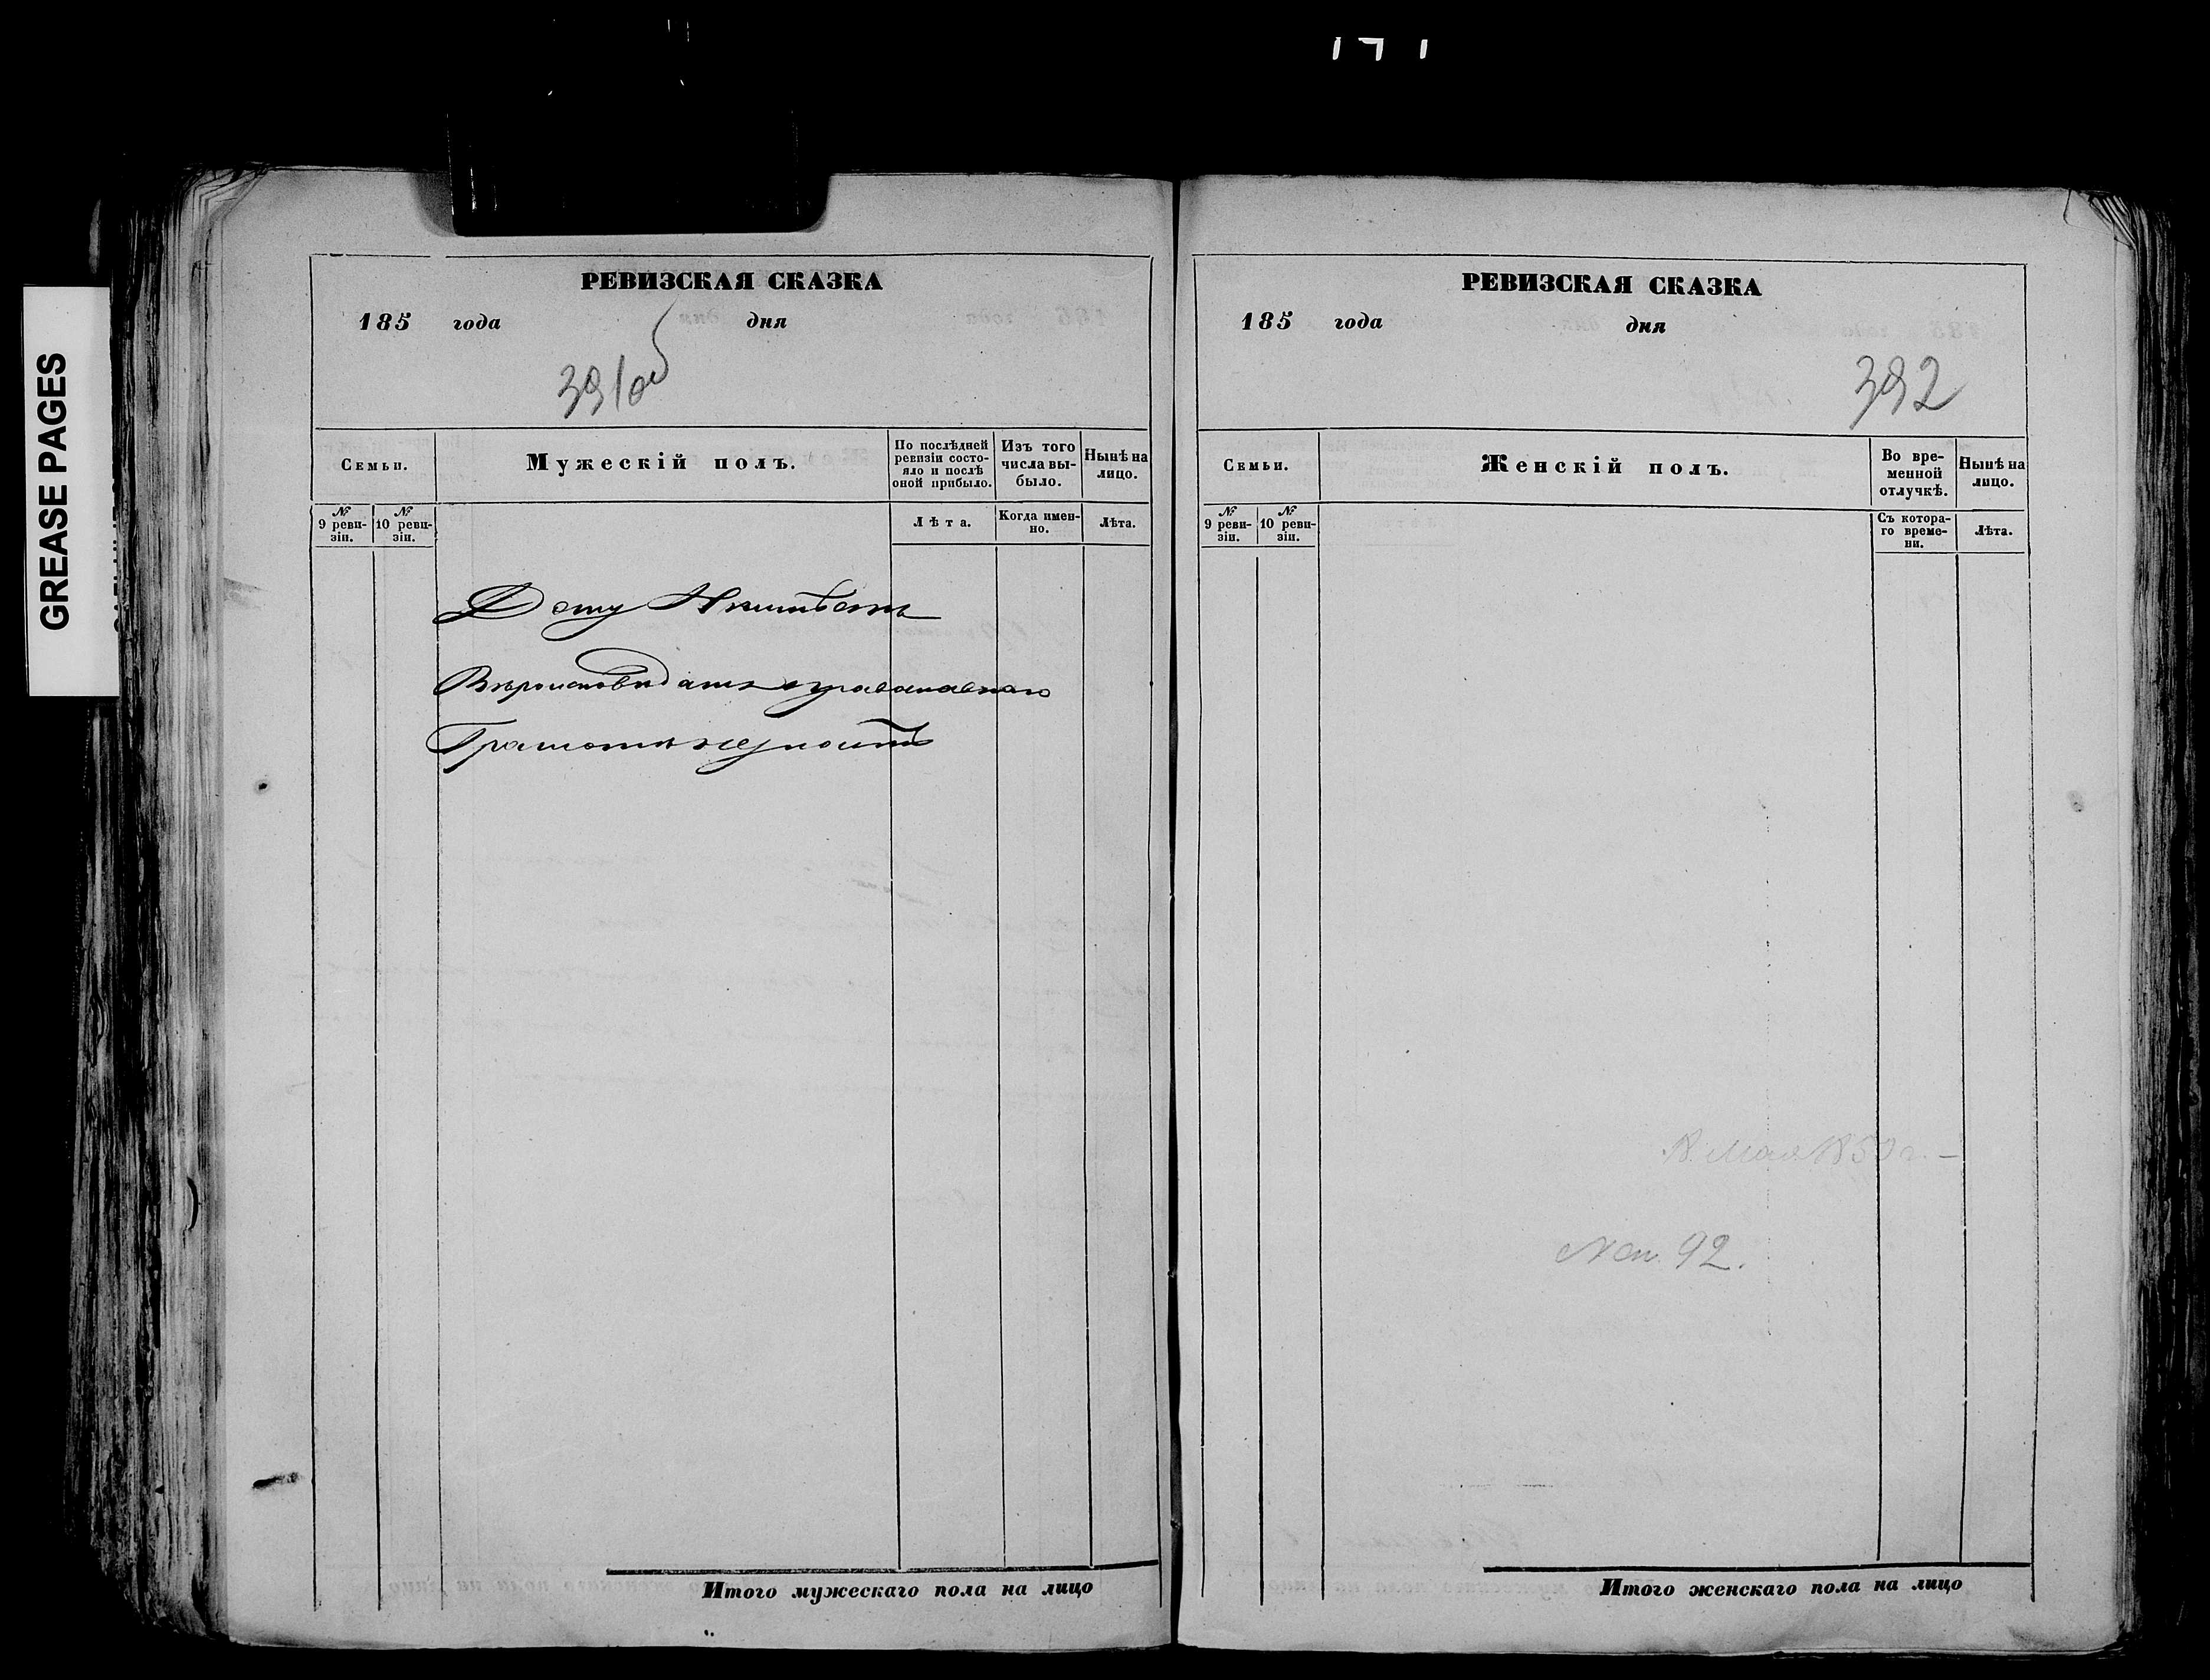 GREASE PAGES
РЕВИЗСКАЯ СКАЗКА
185 года дня
391об
Семьи.
Мужескій полъ.
По послѣдней ревизіи состояло и послѣ оной прибыло.
Изъ того числа выбыло.
Нынѣ на лицо.
№ 9 ревизіи.
№ 10 ревизіи.
Лѣта.
Когда именно.
Лѣта.
Вѣроисповѣданія православнаго
Грамотѣ
Итого мужескаго пола на лицо
РЕВИЗСКАЯ СКАЗКА
185 года дня
392
Семьи.
Женскій полъ.
Во временной отлучкѣ.
Нынѣ на лицо.
№ 9 ревизіи.
№ 10 ревизіи.
Съ котораго времени.
Лѣта.
92.
Итого женскаго пола на лицо